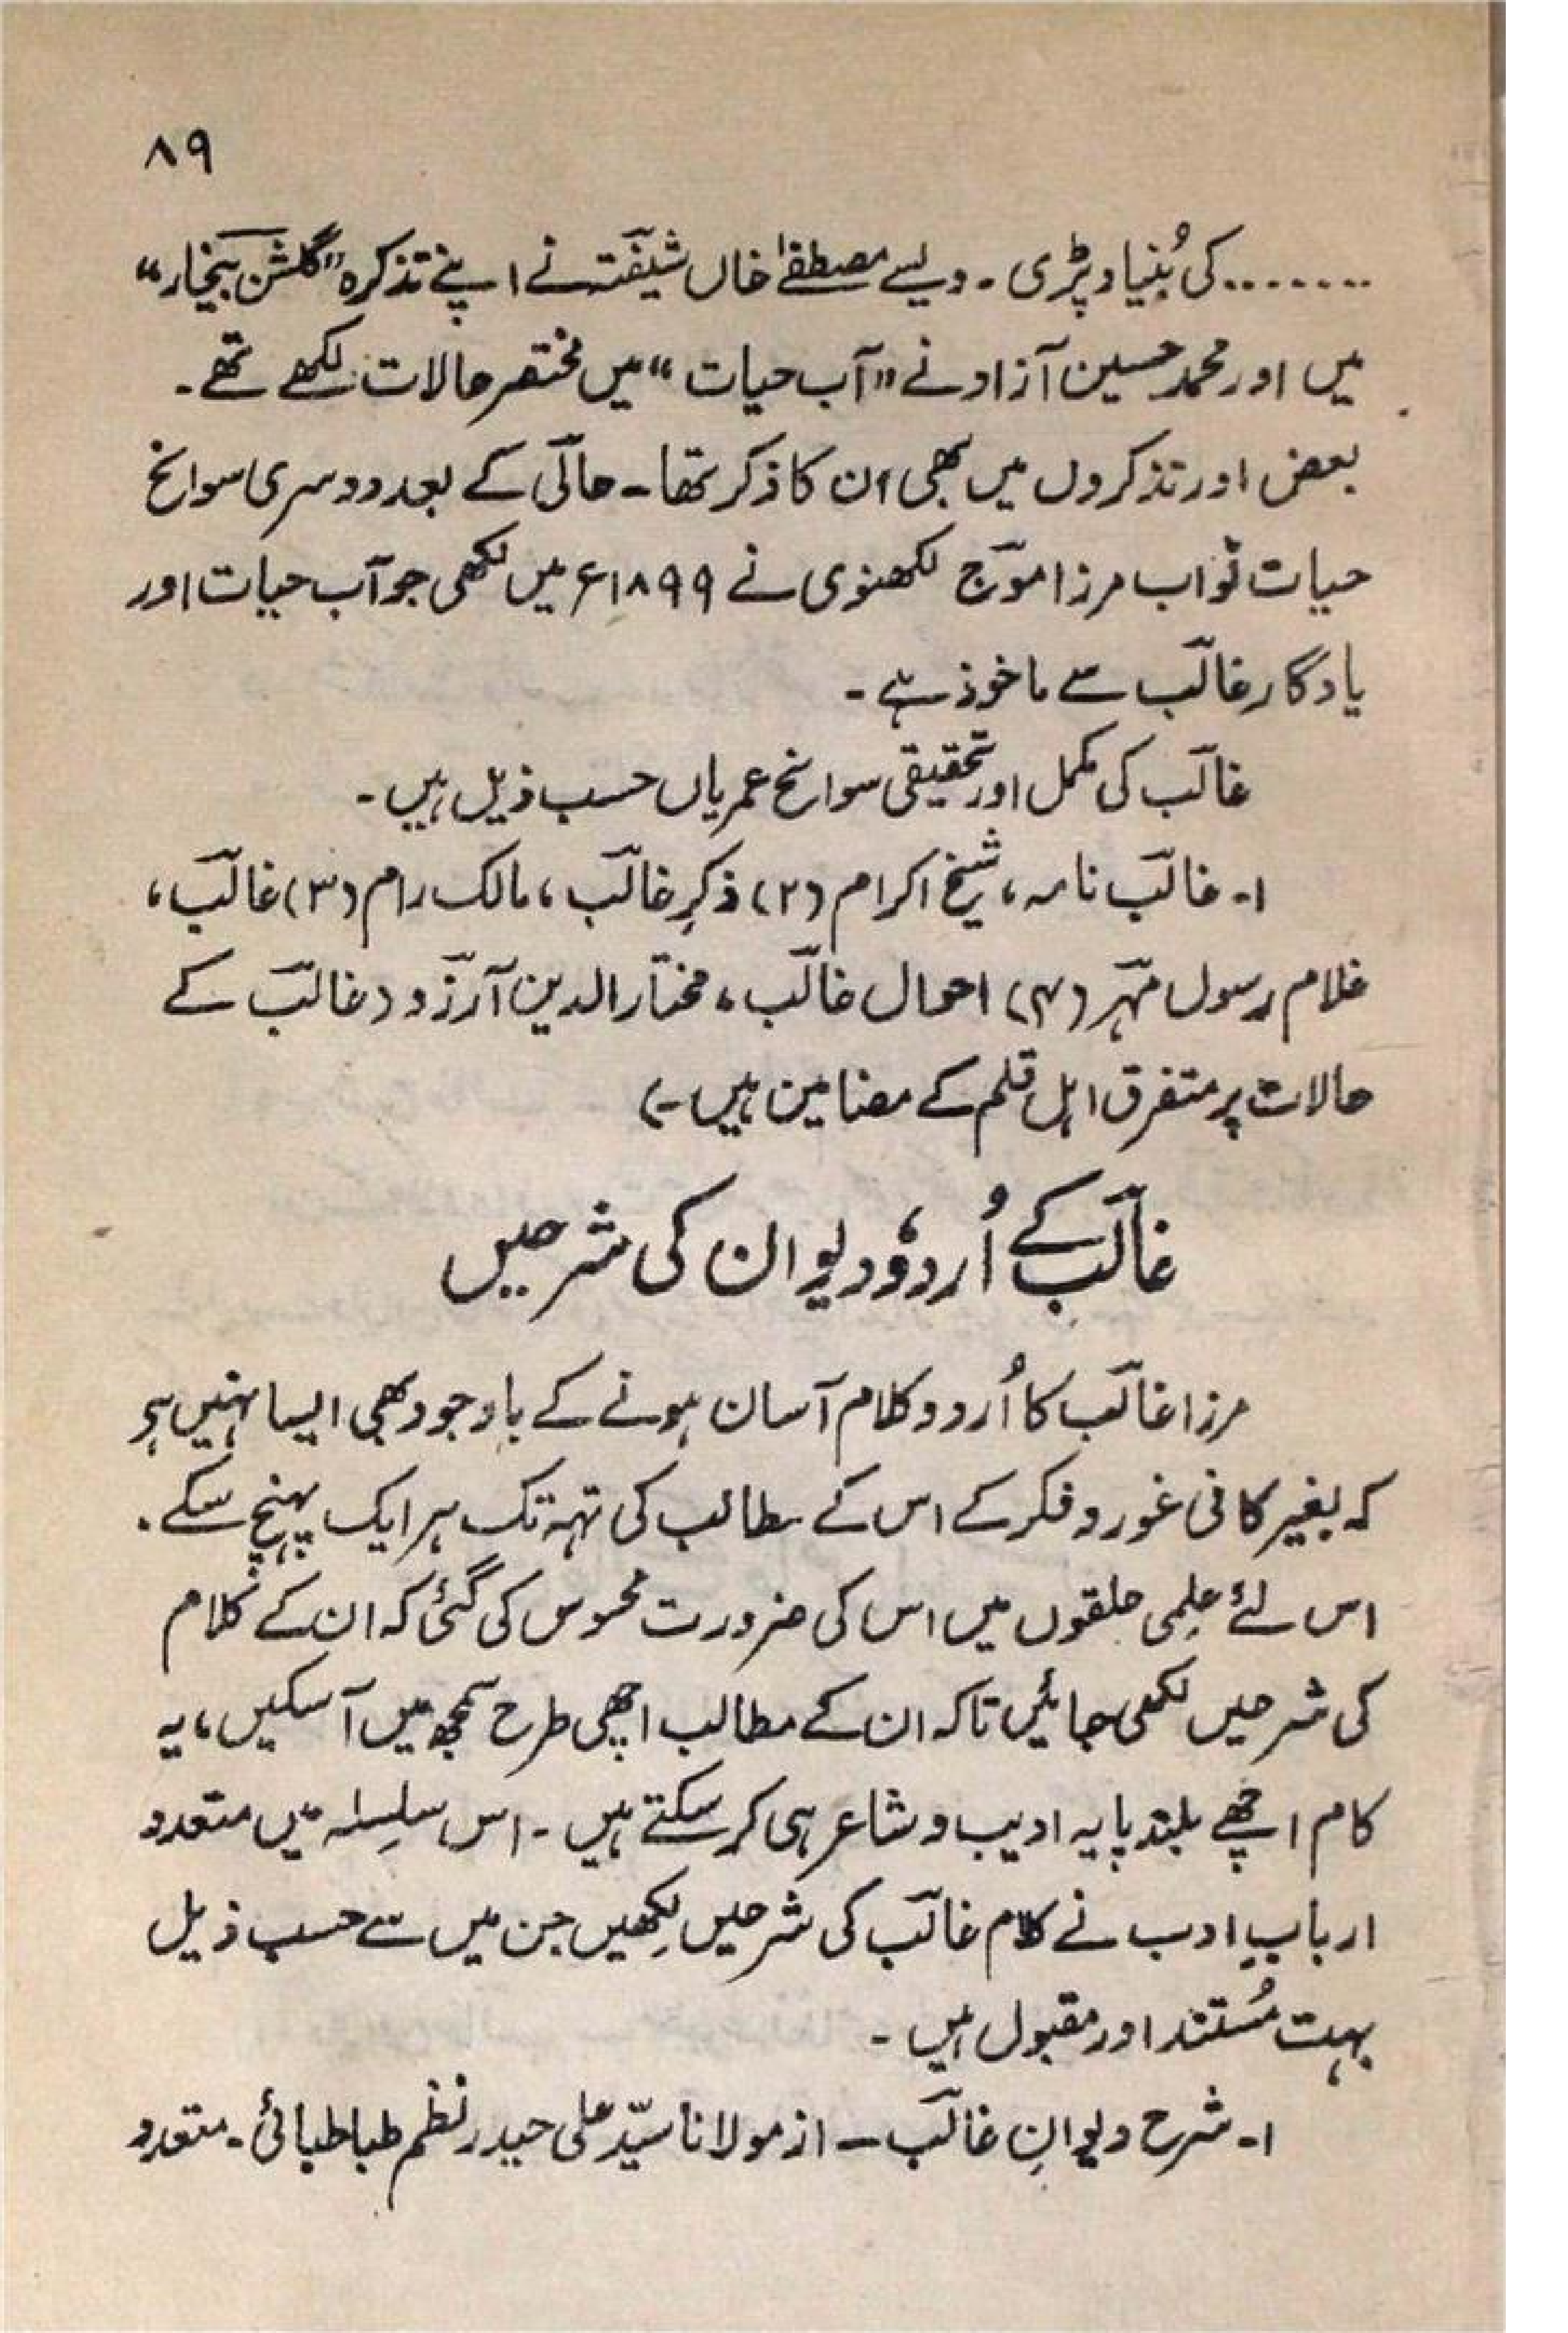 ۸۹
........ کی بُنیاد پڑی ۔ ویسے مصطفےٰ خاں شیفتہ نے اپنے تذکرہ "گلشن بیخار"
میں اور محمد حسین آزاد نے "آب حیات" میں مختصر حالات لکھے تھے ۔
بعض اور تذکروں میں بھی اُن کا ذکر تھا ۔ حالی کے بعد دوسری سوانح
حیات نواب مرزا موج لکھنوی نے ۱۸۹۹ء میں لکھی جو آب حیات اور
یادگار غالب سے ماخوذ ہے ۔
غالب کی مکمل اور تحقیقی سوانح عمریاں حسب ذیل ہیں ۔
۱۔ غالب نامہ ، شیخ اکرام (۲) ذکرِ غالب ، مالک رام (۳) غالب ،
غلام رسول مہر (۴) احوال غالب ، مختار الدین آرزو (غالب کے
حالات پر متفرق اہل قلم کے مضامین ہیں ۔)
غالب کے اُردو دیوان کی شرحیں
مرزا غالب کا اُردو کلام آسان ہونے کے باوجود بھی ایسا نہیں ہے
کہ بغیر کافی غور و فکر کے اس کے مطالب کی تہہ تک ہر ایک پہنچ سکے ۔
اس لئے عِلمی حلقوں میں اس کی ضرورت محسوس کی گئی کہ ان کے کلام
کی شرحیں لکھی جائیں تاکہ ان کے مطالب اچھی طرح سمجھ میں آسکیں ، یہ
کام اچھے بلند پایہ ادیب و شاعر ہی کر سکتے ہیں ۔ اس سلسلہ میں متعدد
اربابِ ادب نے کلام غالب کی شرحیں لِکھیں جن میں سے حسب ذیل
بہت مُستند اور مقبول ہیں ۔
۱۔ شرح دیوانِ غالب ۔ از مولانا سیّد علی حیدر نظم طباطبائی ۔ متعدد